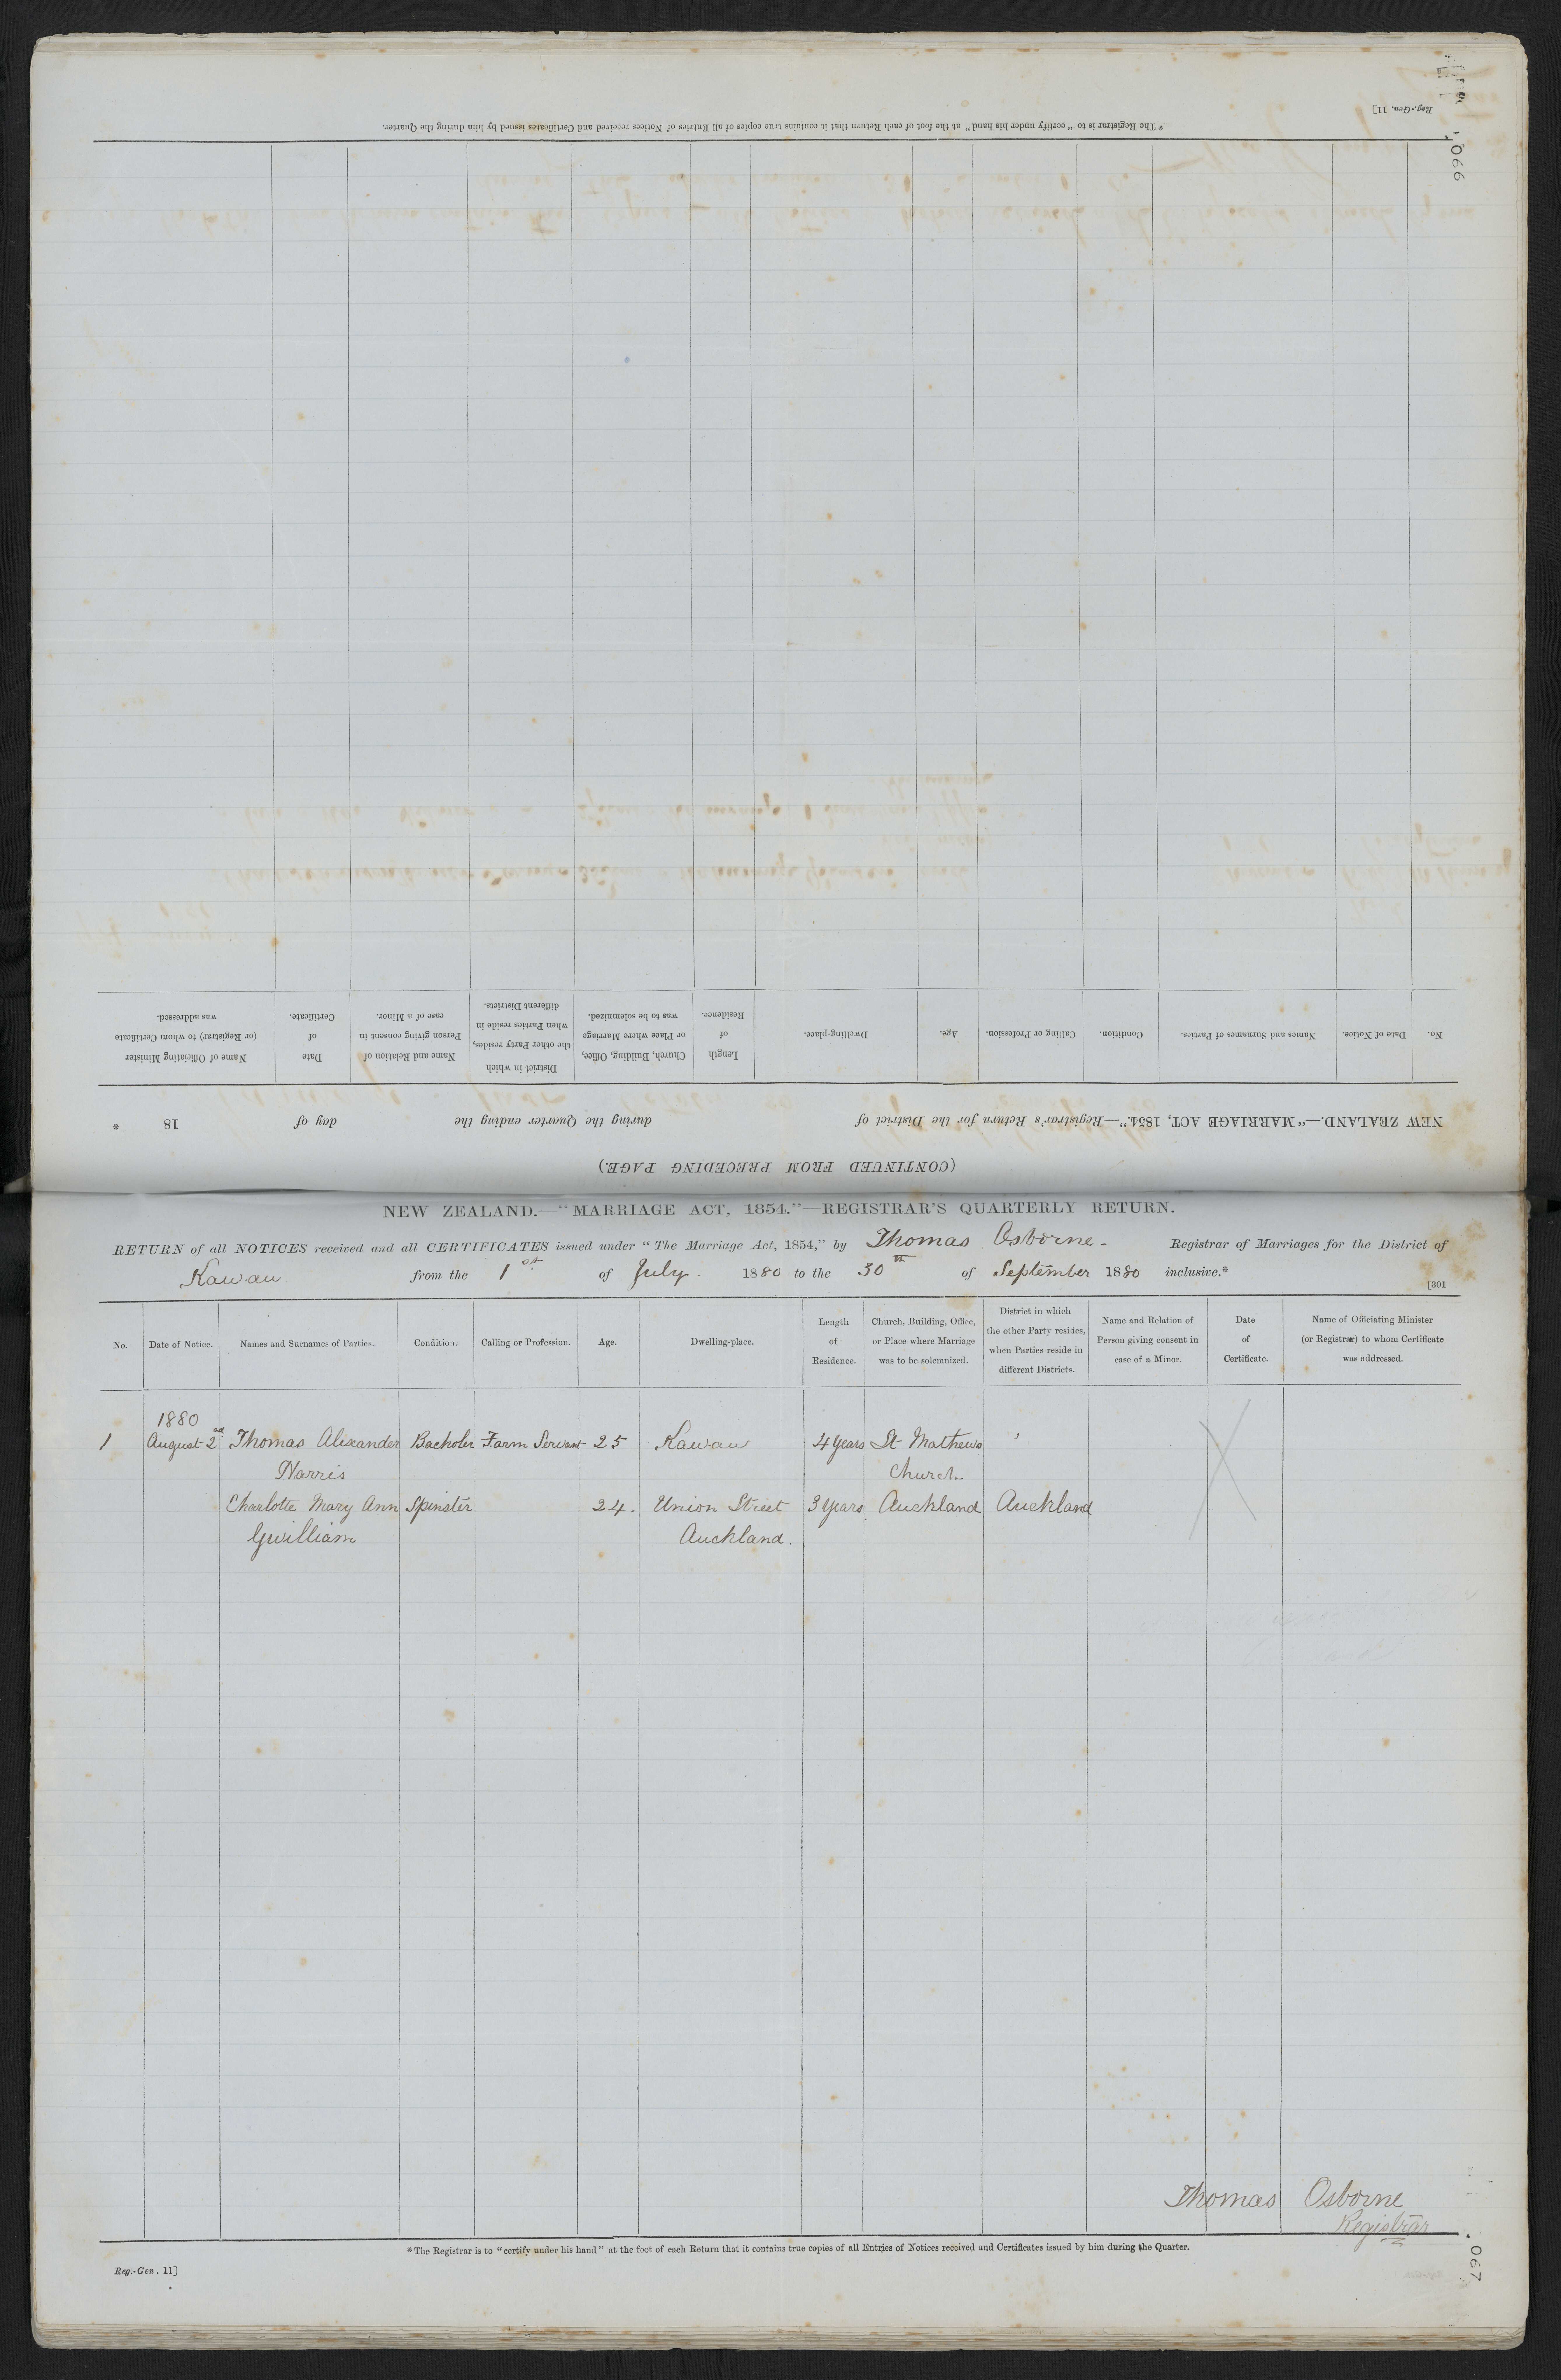 Reg.-Gen. 11]
* The Registrar is to "certify under his hand" at the foot of each Return that it contains true copies of all Entries of Notices received and Certificates issued by him during the Quarter.
066
(CONTINUED FROM PRECEDING PAGE.)
NEW ZEALAND.—"MARRIAGE ACT, 1854."—Registrar's Return for the District of during the Quarter ending the day of 18 *
No. Date of Notice. Names and Surnames of Parties. Condition. Calling or Profession. Age. Dwelling-place. Length of Residence. Church, Building, Office, or Place where Marriage was to be solemnized. District in which the other Party resides, when Parties reside in different Districts. Name and Relation of Person giving consent in case of a Minor. Date of Certificate. Name of Officiating Minister (or Registrar) to whom Certificate was addressed.
NEW ZEALAND.—"MARRIAGE ACT, 1854."—REGISTRAR'S QUARTERLY RETURN.
RETURN of all NOTICES received and all CERTIFICATES issued under "The Marriage Act, 1854," by Thomas Osborne - Registrar of Marriages for the District of
Kawau from the 1st of July 1880 to the 30th of September 1880 inclusive.*
[301
No. Date of Notice. Names and Surnames of Parties. Condition. Calling or Profession. Age. Dwelling-place. Length of Residence. Church, Building, Office, or Place where Marriage was to be solemnized. District in which the other Party resides, when Parties reside in different Districts. Name and Relation of Person giving consent in case of a Minor. Date of Certificate. Name of Officiating Minister (or Registrar) to whom Certificate was addressed.
1880
1 August 2nd Thomas Alexander Bacholer Farm Servant 25 Kawau 4 years St Mathews
Harris Church
Charlotte Mary Ann Spinster 24. Union Street 3 years Auckland Auckland
Gwilliam Auckland.
Thomas Osborne
Registrar
* The Registrar is to "certify under his hand" at the foot of each Return that it contains true copies of all Entries of Notices received and Certificates issued by him during the Quarter.
Reg.-Gen. 11]
067